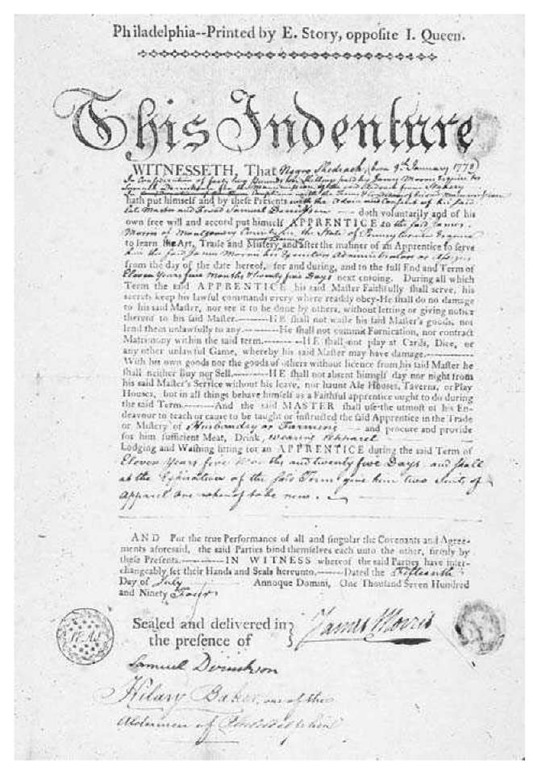 Philadelphia--Printed by E. Story, opposite I. Queen.
This Indenture
WITNESSETH, That Negro Shedrach, born 9th January 1778)
In Consideration of forty two Pounds ten Shillings paid by James Morris Esquire to
Samuel Davidson for the manumission of the said
hath put himself and by these Presents with the Advice and Consent of his said
late Master and Friend Samuel Davidson doth voluntarily and of his
own free will and accord put himself APPRENTICE to the said James
Morris of Montgomery County in the State of Pennsylvania Esquire
to learn the Art, Trade and Mystery, and after the manner of an Apprentice to serve
him the said James Morris his Executors Administrators or Assigns
from the day of the date hereof, for and during, and to the full End and Term of
Eleven Years five Months & twenty five Days next ensuing. During all which
Term the said APPRENTICE his said Master Faithfully shall serve, his
secrets keep his lawful commands every where readily obey-He shall do no damage
to his said Master, nor see it to be done by others, without letting or giving notice
thereof to his said Master.------HE shall not waste his said Master's goods, not
lend them unlawfully to any.--------He shall not commit Fornication, nor contract
Matrimony within the said term.------HE shall not play at Cards, Dice, or
any other unlawful Game, whereby his said Master may have damage.--------
With his own goods nor the goods of others without licence from his said Master he
shall neither Buy nor Sell.------HE shall not absent himself day nor night from
his said Master's Service without his leave, nor haunt Ale Houses, Taverns, or Play
Houses, but in all things behave himself as a Faithful apprentice ought to do during
the said Term.------And the said MASTER shall use the utmost of his En-
deavour to teach or cause to be taught or instructed the said Apprentice in the Trade
or Mistery of Husbandry or Farming and procure and provide
for him sufficient Meat, Drink, wearing Apparel
Lodging and Washing fitting for an APPRENTICE during the said Term of
Eleven Years five Months and twenty five Days and shall
at the Expiration of the said Term give him two Suits of
Apparel one whereof to be new.
AND For the true Performance of all and singular the Covenants and Agree-
ments aforesaid, the said Parties bind themselves each unto the other, firmly by
these Presents.------IN WITNESS whereof the said Parties have inter-
changeably set their Hands and Seals hereunto.------Dated the Fifteenth
Day of July Annoque Domini, One Thousand Seven Hundred
and Ninety Four
Sealed and delivered in
the presence of
James Morris
Samuel Davidson
Hilary Baker, one of the
Aldermen of Philadelphia